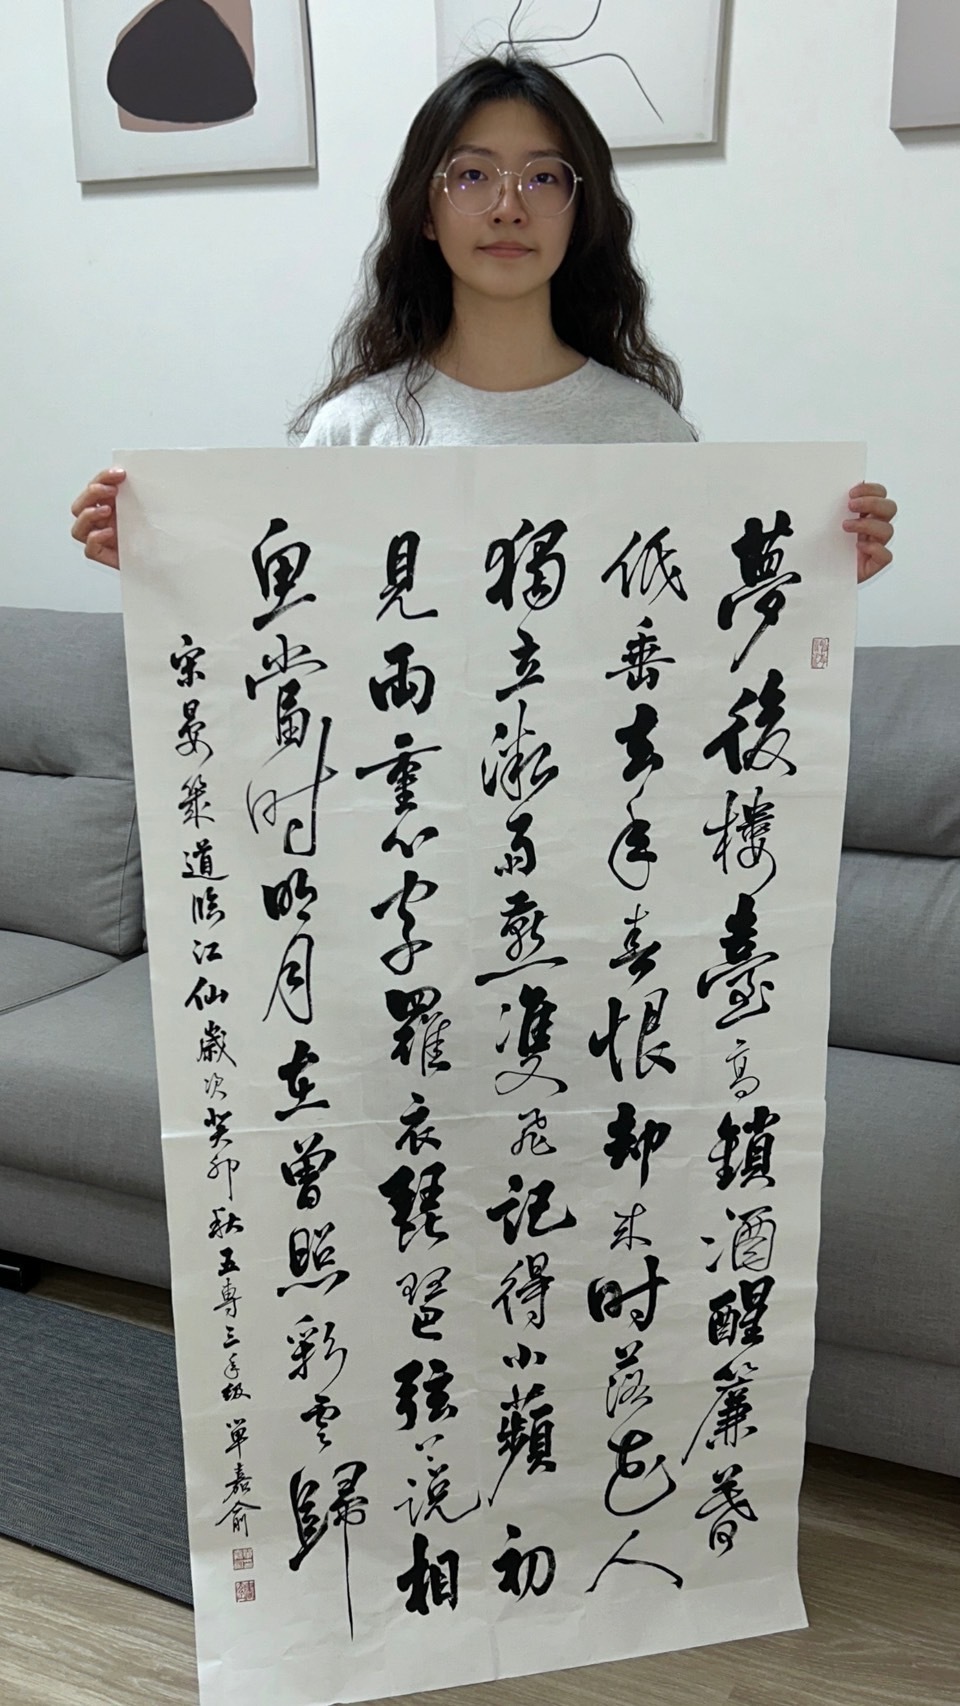 夢後樓臺高鎖酒醒簾幕
低垂去年春恨却來時落花人
獨立微雨燕雙飛記得小蘋初
見兩重心字羅衣琵琶弦上說相
思當時明月在曾照彩雲歸
宋晏幾道臨江仙歲次癸卯秋五專三年級單嘉俞